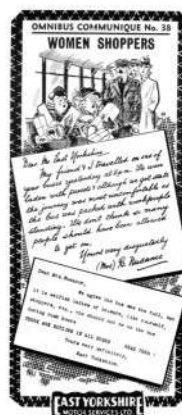 OMNIBUS COMMUNIQUE No. 38
WOMEN SHOPPERS
Dear Mr. East Yorkshire,
My friend & I travelled on one of
your buses yesterday at 6 p.m. We were
laden with parcels & although we got seats
the journey was most uncomfortable as
the bus was packed with workpeople
standing. We don't think so many
people should have been allowed
to get on.
Yours very disgustedly
(Mrs)
Dear Mrs.
We agree the bus was too full, but
it is selfish ladies of leisure, like yourself,
shoppers, etc., who should not be on the bus
during rush hours.
THERE ARE NOTICES IN ALL BUSES READ THEM!
Yours very definitely,
East Yorkshire.
EAST YORKSHIRE
MOTOR SERVICES LTD.